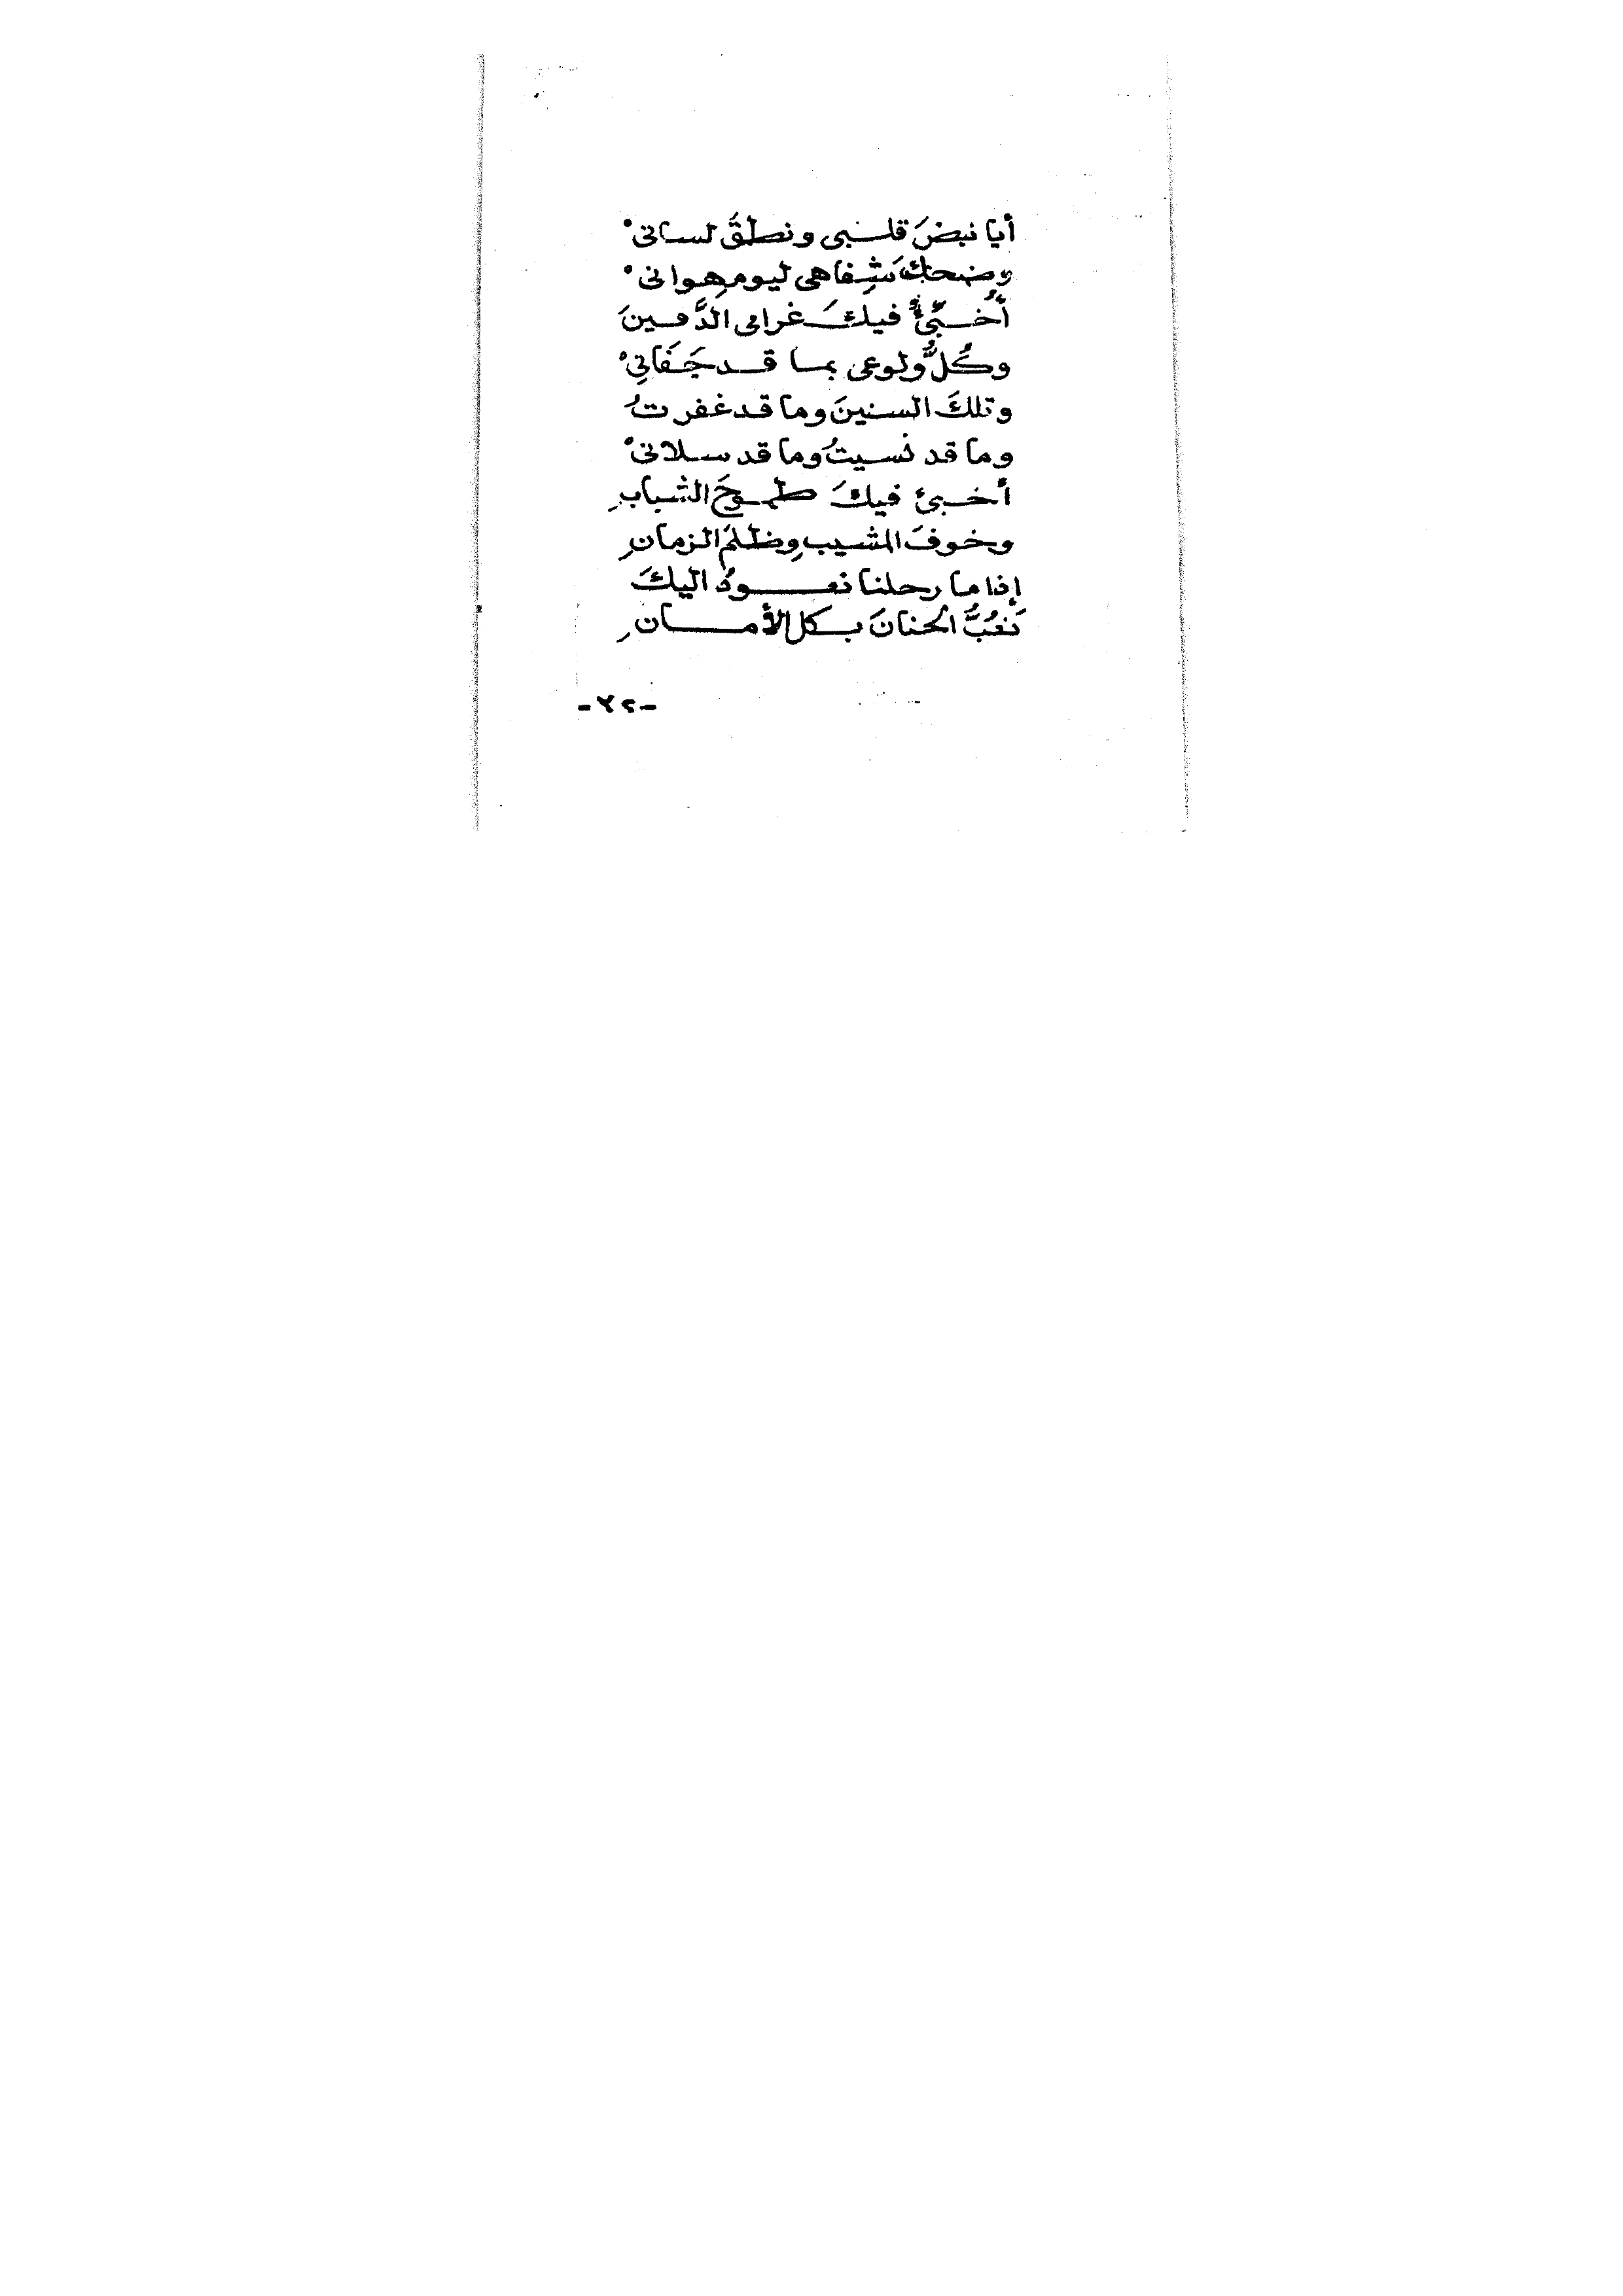 أيا نبضَ قلبى ونطقَ لسانىْ
وضحكَ شِفاهى ليوم هِوانىْ
أُخبِّئُ فيكَ غرامى الدَّفينَ
وكُلَّ ولوعى بما قد جَفَانِىْ
وتلكَ السنينَ وما قد غفرتُ
وما قد نسيتُ وما قد سلانىْ
أخبئ فيكَ طموحَ الشبابِ
وخوفَ المشيبِ وظلمَ الزمانِ
إذا ما رحلنا نعودُ اليكَ
نَعُبُّ الحنانَ بكل الأمانِ
-٢٢-